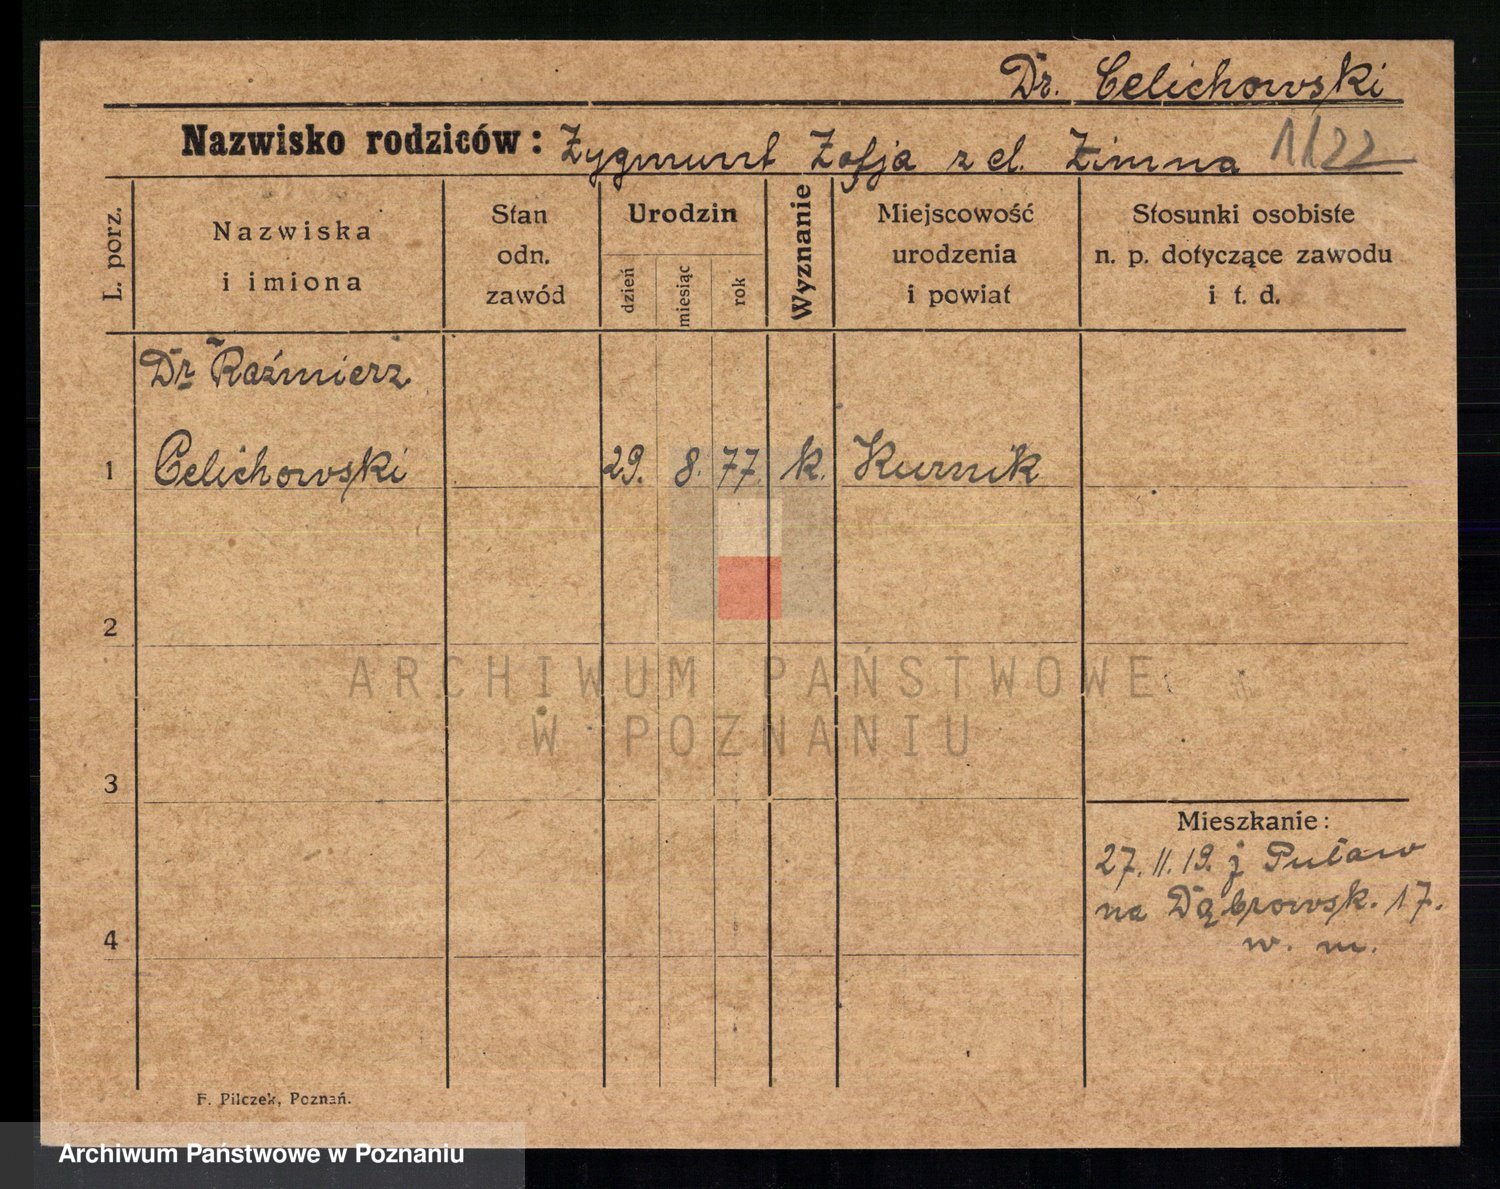 Dr. Celichowski
Nazwisko rodziców: Zygmunt Zofja z d. Zimna 1/22
L. porz.
Nazwiska
i imiona
Stan
odn.
zawód
Urodzin
dzień
miesiąc
rok
Wyznanie
Miejscowość
urodzenia
i powiat
Stosunki osobiste
n. p. dotyczące zawodu
i t. d.
Dr Kaźmierz
1 Celichowski 29. 8. 77. k. Kurnik
2
3
4
Mieszkanie:
27. 11. 19. j Puław
na Dąbrowsk. 17.
w. m.
ARCHIWUM PAŃSTWOWE
W POZNANIU
F. Pilczek, Poznań.
Archiwum Państwowe w Poznaniu